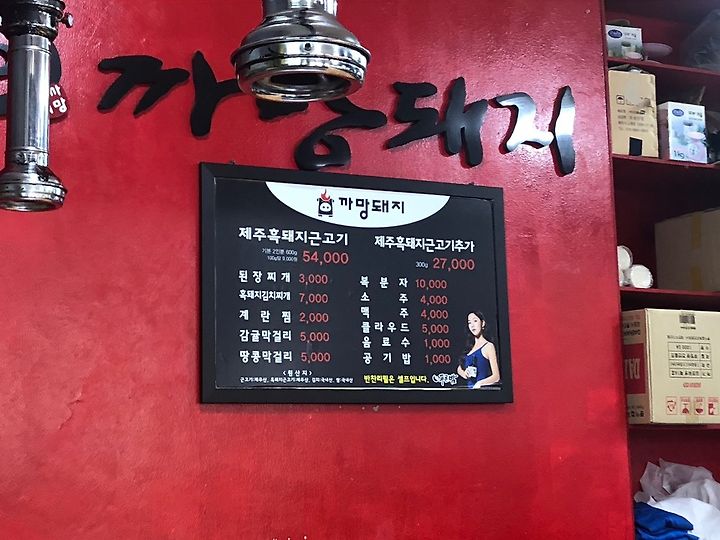 까망돼지
까망돼지
제주흑돼지근고기
기본 2인분 600g
100g당 9,000원
54,000
된장찌개 3,000
흑돼지김치찌개 7,000
계란찜 2,000
감귤막걸리 5,000
땅콩막걸리 5,000
<원산지>
근고기:제주산, 흑돼지근고기:제주산, 김치:국내산, 쌀:국내산
제주흑돼지근고기추가
300g 27,000
복분자 10,000
소주 4,000
맥주 4,000
클라우드 5,000
음료수 1,000
공기밥 1,000
반찬리필은 셀프입니다.